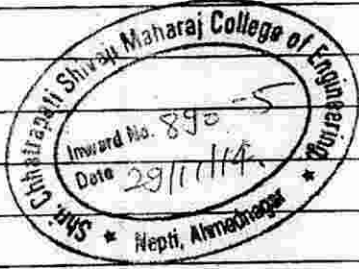 Shri. Chhatrapati Shivaji Maharaj College of Engineering
Inward No. 890-5
Date 29/11/14
★ Nepti, Ahmednagar ★